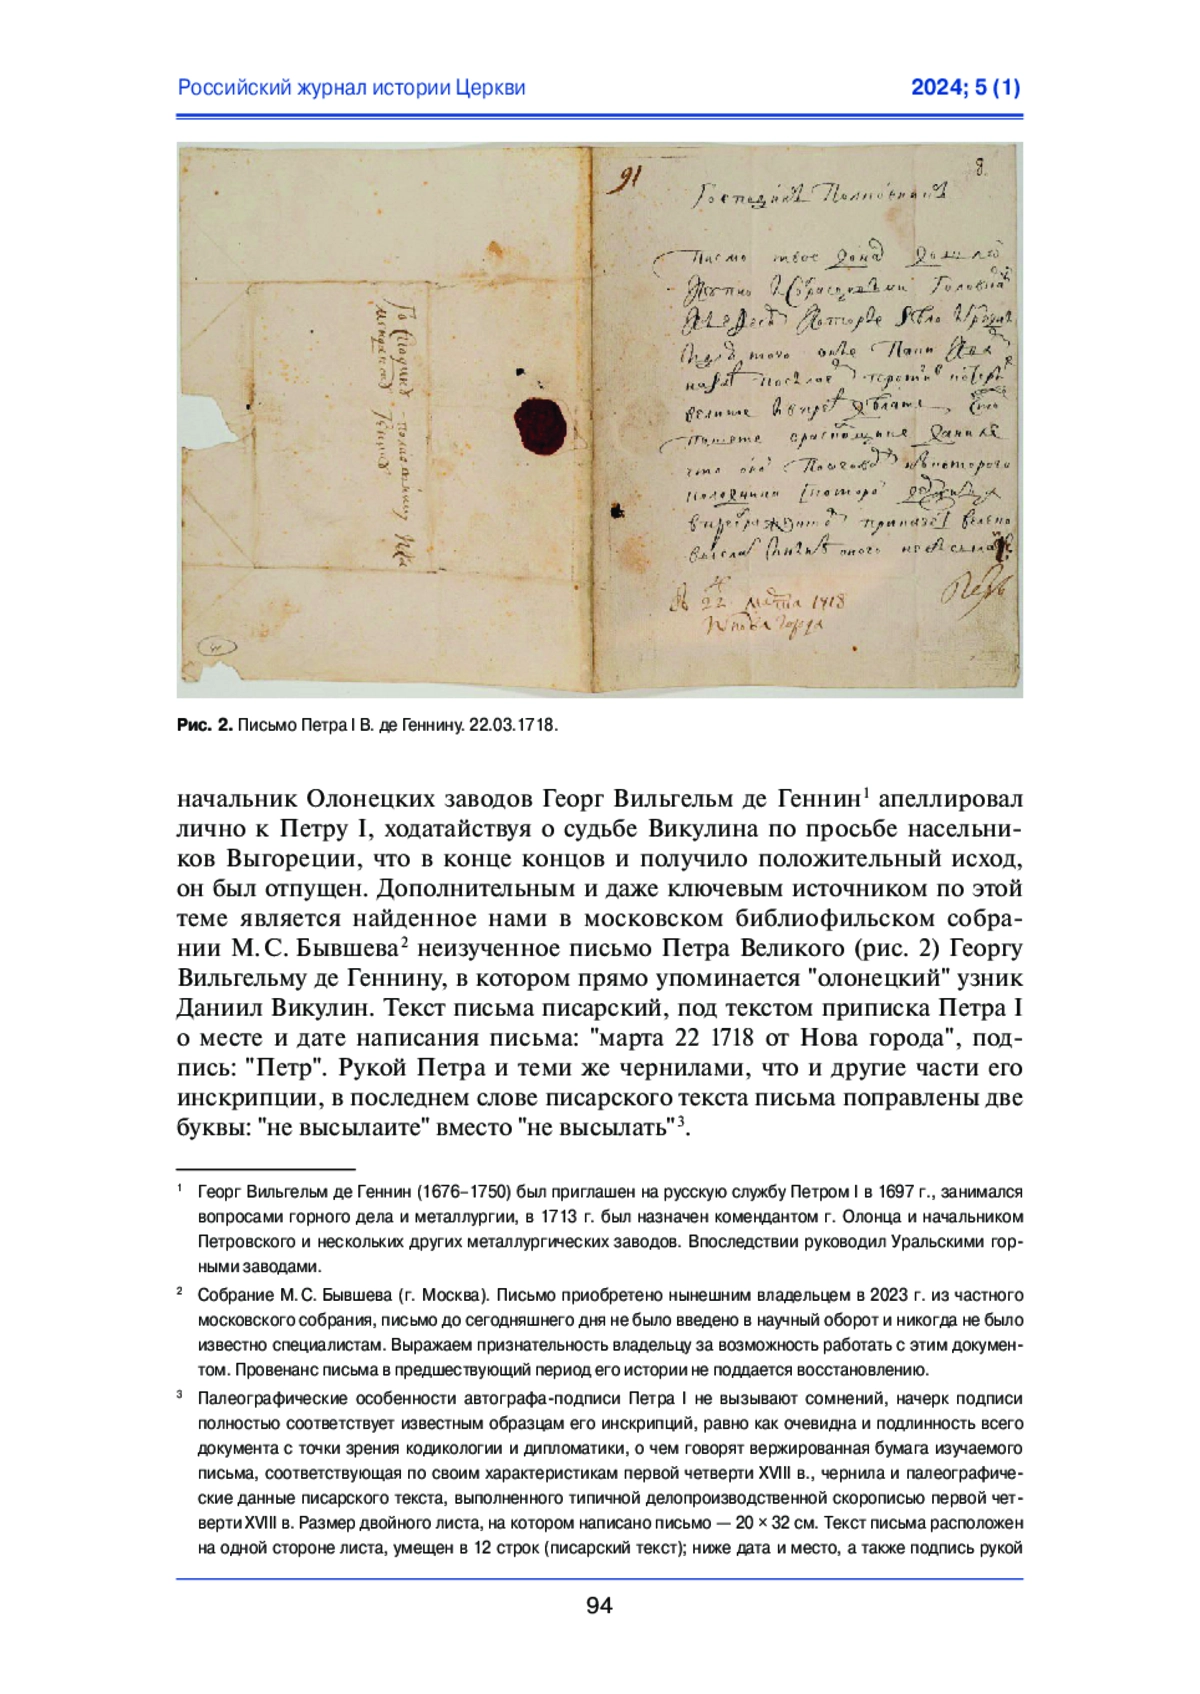 Российский журнал истории Церкви 2024; 5 (1)
91
8.
Господинъ Полковникъ
Писмо твое
что онъ
22 марта 1718
Нова города
Рис. 2. Письмо Петра I В. де Геннину. 22.03.1718.
начальник Олонецких заводов Георг Вильгельм де Геннин¹ апеллировал
лично к Петру I, ходатайствуя о судьбе Викулина по просьбе насельни-
ков Выгореции, что в конце концов и получило положительный исход,
он был отпущен. Дополнительным и даже ключевым источником по этой
теме является найденное нами в московском библиофильском собра-
нии М. С. Бывшева² неизученное письмо Петра Великого (рис. 2) Георгу
Вильгельму де Геннину, в котором прямо упоминается "олонецкий" узник
Даниил Викулин. Текст письма писарский, под текстом приписка Петра I
о месте и дате написания письма: "марта 22 1718 от Нова города", под-
пись: "Петр". Рукой Петра и теми же чернилами, что и другие части его
инскрипции, в последнем слове писарского текста письма поправлены две
буквы: "не высылаите" вместо "не высылать"³.
¹ Георг Вильгельм де Геннин (1676–1750) был приглашен на русскую службу Петром I в 1697 г., занимался
вопросами горного дела и металлургии, в 1713 г. был назначен комендантом г. Олонца и начальником
Петровского и нескольких других металлургических заводов. Впоследствии руководил Уральскими гор-
ными заводами.
² Собрание М. С. Бывшева (г. Москва). Письмо приобретено нынешним владельцем в 2023 г. из частного
московского собрания, письмо до сегодняшнего дня не было введено в научный оборот и никогда не было
известно специалистам. Выражаем признательность владельцу за возможность работать с этим докумен-
том. Провенанс письма в предшествующий период его истории не поддается восстановлению.
³ Палеографические особенности автографа-подписи Петра I не вызывают сомнений, начерк подписи
полностью соответствует известным образцам его инскрипций, равно как очевидна и подлинность всего
документа с точки зрения кодикологии и дипломатики, о чем говорят вержированная бумага изучаемого
письма, соответствующая по своим характеристикам первой четверти XVIII в., чернила и палеографиче-
ские данные писарского текста, выполненного типичной делопроизводственной скорописью первой чет-
верти XVIII в. Размер двойного листа, на котором написано письмо — 20 × 32 см. Текст письма расположен
на одной стороне листа, умещен в 12 строк (писарский текст); ниже дата и место, а также подпись рукой
94